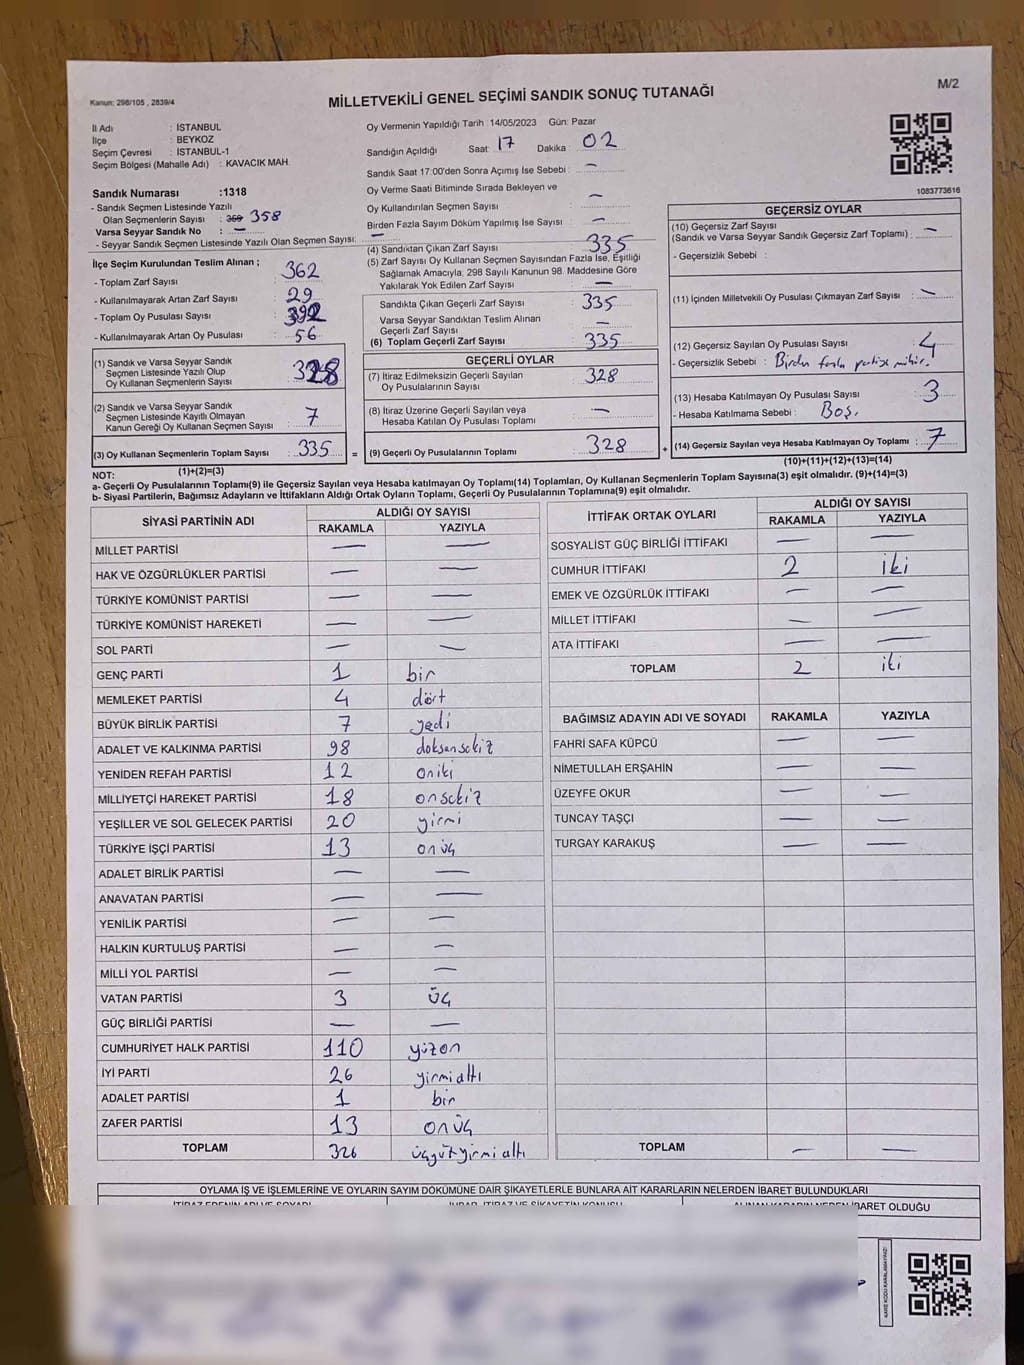 M/2
Kanun: 298/105 , 2839/4
MİLLETVEKİLİ GENEL SEÇİMİ SANDIK SONUÇ TUTANAĞI
İl Adı : İSTANBUL
İlçe : BEYKOZ
Seçim Çevresi : İSTANBUL-1
Seçim Bölgesi (Mahalle Adı) : KAVACIK MAH.
Sandık Numarası :1318
- Sandık Seçmen Listesinde Yazılı
Olan Seçmenlerin Sayısı : 359 358
Varsa Seyyar Sandık No : —
- Seyyar Sandık Seçmen Listesinde Yazılı Olan Seçmen Sayısı: —
İlçe Seçim Kurulundan Teslim Alınan ;
- Toplam Zarf Sayısı : 362
- Kullanılmayarak Artan Zarf Sayısı : 29
- Toplam Oy Pusulası Sayısı : 392
- Kullanılmayarak Artan Oy Pusulası : 56
(1) Sandık ve Varsa Seyyar Sandık
Seçmen Listesinde Yazılı Olup
Oy Kullanan Seçmenlerin Sayısı : 328
(2) Sandık ve Varsa Seyyar Sandık
Seçmen Listesinde Kayıtlı Olmayan
Kanun Gereği Oy Kullanan Seçmen Sayısı : 7
(3) Oy Kullanan Seçmenlerin Toplam Sayısı : 335 =
(1)+(2)=(3)
Oy Vermenin Yapıldığı Tarih :14/05/2023 Gün: Pazar
Sandığın Açıldığı Saat: 17 Dakika : 02
Sandık Saat 17:00'den Sonra Açımış İse Sebebi : —
Oy Verme Saati Bitiminde Sırada Bekleyen ve
Oy Kullandırılan Seçmen Sayısı : —
Birden Fazla Sayım Döküm Yapılmış İse Sayısı : —
(4) Sandıktan Çıkan Zarf Sayısı : 335
(5) Zarf Sayısı Oy Kullanan Seçmen Sayısından Fazla İse, Eşitliği
Sağlamak Amacıyla, 298 Sayılı Kanunun 98. Maddesine Göre
Yakılarak Yok Edilen Zarf Sayısı : —
Sandıkta Çıkan Geçerli Zarf Sayısı : 335
Varsa Seyyar Sandıktan Teslim Alınan
Geçerli Zarf Sayısı : —
(6) Toplam Geçerli Zarf Sayısı : 335
GEÇERLİ OYLAR
(7) İtiraz Edilmeksizin Geçerli Sayılan
Oy Pusulalarının Sayısı : 328
(8) İtiraz Üzerine Geçerli Sayılan veya
Hesaba Katılan Oy Pusulası Toplamı : —
(9) Geçerli Oy Pusulalarının Toplamı : 328 +
1083773616
GEÇERSİZ OYLAR
(10) Geçersiz Zarf Sayısı
(Sandık ve Varsa Seyyar Sandık Geçersiz Zarf Toplamı) : —
- Geçersizlik Sebebi :
(11) İçinden Milletvekili Oy Pusulası Çıkmayan Zarf Sayısı : —
(12) Geçersiz Sayılan Oy Pusulası Sayısı : 4
- Geçersizlik Sebebi : Birden fazla partiye mühür.
(13) Hesaba Katılmayan Oy Pusulası Sayısı : 3
- Hesaba Katılmama Sebebi : Boş.
(14) Geçersiz Sayılan veya Hesaba Katılmayan Oy Toplamı : 7
(10)+(11)+(12)+(13)=(14)
NOT:
a- Geçerli Oy Pusulalarının Toplamı(9) ile Geçersiz Sayılan veya Hesaba katılmayan Oy Toplamı(14) Toplamları, Oy Kullanan Seçmenlerin Toplam Sayısına(3) eşit olmalıdır. (9)+(14)=(3)
b- Siyasi Partilerin, Bağımsız Adayların ve İttifakların Aldığı Ortak Oyların Toplamı, Geçerli Oy Pusulalarının Toplamına(9) eşit olmalıdır.
SİYASİ PARTİNİN ADI ALDIĞI OY SAYISI
RAKAMLA YAZIYLA
MİLLET PARTİSİ — —
HAK VE ÖZGÜRLÜKLER PARTİSİ — —
TÜRKİYE KOMÜNİST PARTİSİ — —
TÜRKİYE KOMÜNİST HAREKETİ — —
SOL PARTİ — —
GENÇ PARTİ 1 bir
MEMLEKET PARTİSİ 4 dört
BÜYÜK BİRLİK PARTİSİ 7 yedi
ADALET VE KALKINMA PARTİSİ 98 doksansekiz
YENİDEN REFAH PARTİSİ 12 oniki
MİLLİYETÇİ HAREKET PARTİSİ 18 onsekiz
YEŞİLLER VE SOL GELECEK PARTİSİ 20 yirmi
TÜRKİYE İŞÇİ PARTİSİ 13 onüç
ADALET BİRLİK PARTİSİ — —
ANAVATAN PARTİSİ — —
YENİLİK PARTİSİ — —
HALKIN KURTULUŞ PARTİSİ — —
MİLLİ YOL PARTİSİ — —
VATAN PARTİSİ 3 üç
GÜÇ BİRLİĞİ PARTİSİ — —
CUMHURİYET HALK PARTİSİ 110 yüzon
İYİ PARTİ 26 yirmialtı
ADALET PARTİSİ 1 bir
ZAFER PARTİSİ 13 onüç
TOPLAM 326 üçyüzyirmialtı
İTTİFAK ORTAK OYLARI ALDIĞI OY SAYISI
RAKAMLA YAZIYLA
SOSYALİST GÜÇ BİRLİĞİ İTTİFAKI — —
CUMHUR İTTİFAKI 2 iki
EMEK VE ÖZGÜRLÜK İTTİFAKI — —
MİLLET İTTİFAKI — —
ATA İTTİFAKI — —
TOPLAM 2 iki
BAĞIMSIZ ADAYIN ADI VE SOYADI RAKAMLA YAZIYLA
FAHRİ SAFA KÜPCÜ — —
NİMETULLAH ERŞAHİN — —
ÜZEYFE OKUR — —
TUNCAY TAŞÇI — —
TURGAY KARAKUŞ — —
TOPLAM — —
OYLAMA İŞ VE İŞLEMLERİNE VE OYLARIN SAYIM DÖKÜMÜNE DAİR ŞİKAYETLERLE BUNLARA AİT KARARLARIN NELERDEN İBARET BULUNDUKLARI
İBARET OLDUĞU
KARE KODU KARALAMAYINIZ!